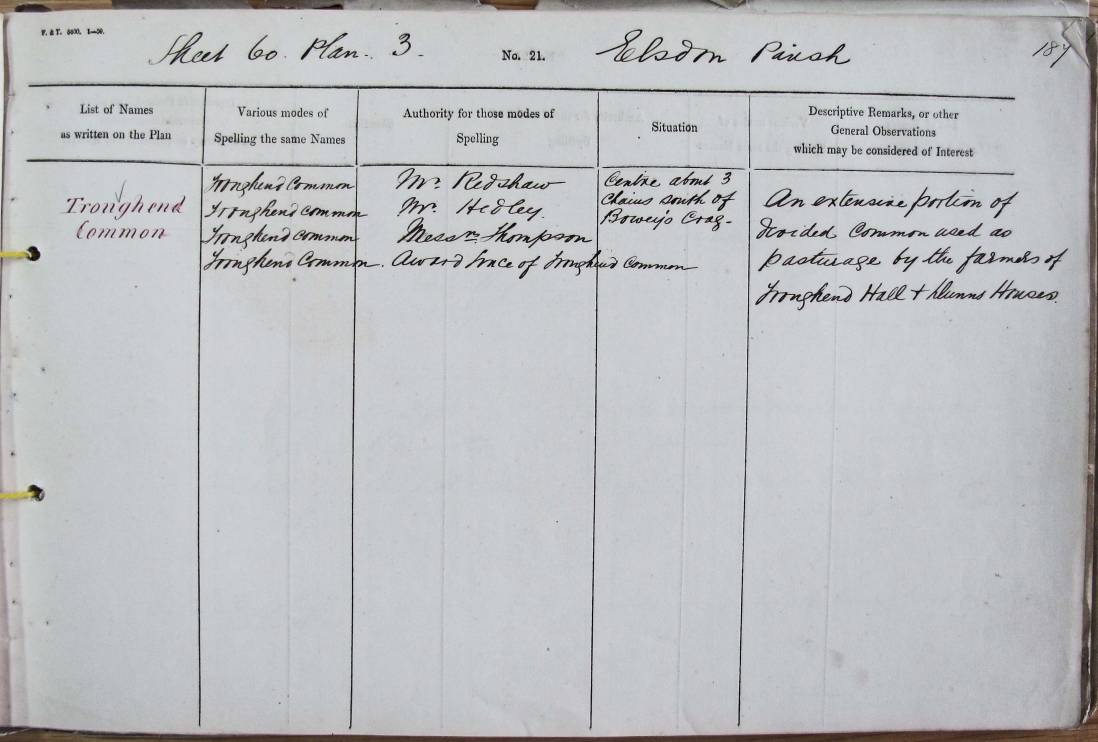 F. & T. 8600. 1—59.
Sheet 60. Plan. 3. No. 21. Elsdon Parish 187
List of Names
as written on the Plan
Various modes of
Spelling the same Names
Authority for those modes of
Spelling
Situation
Descriptive Remarks, or other
General Observations
which may be considered of Interest
Troughend
Common
Troughend Common
Troughend Common
Troughend Common
Troughend Common.
Mr. Redshaw
Mr. Hedley.
Messrs Thompson
Award Trace of Troughend Common
Centre about 3
Chains south of
Bowey's Crag-
An extensive portion of
divided Common used as
pasturage by the farmers of
Troughend Hall + Dunns Houses.